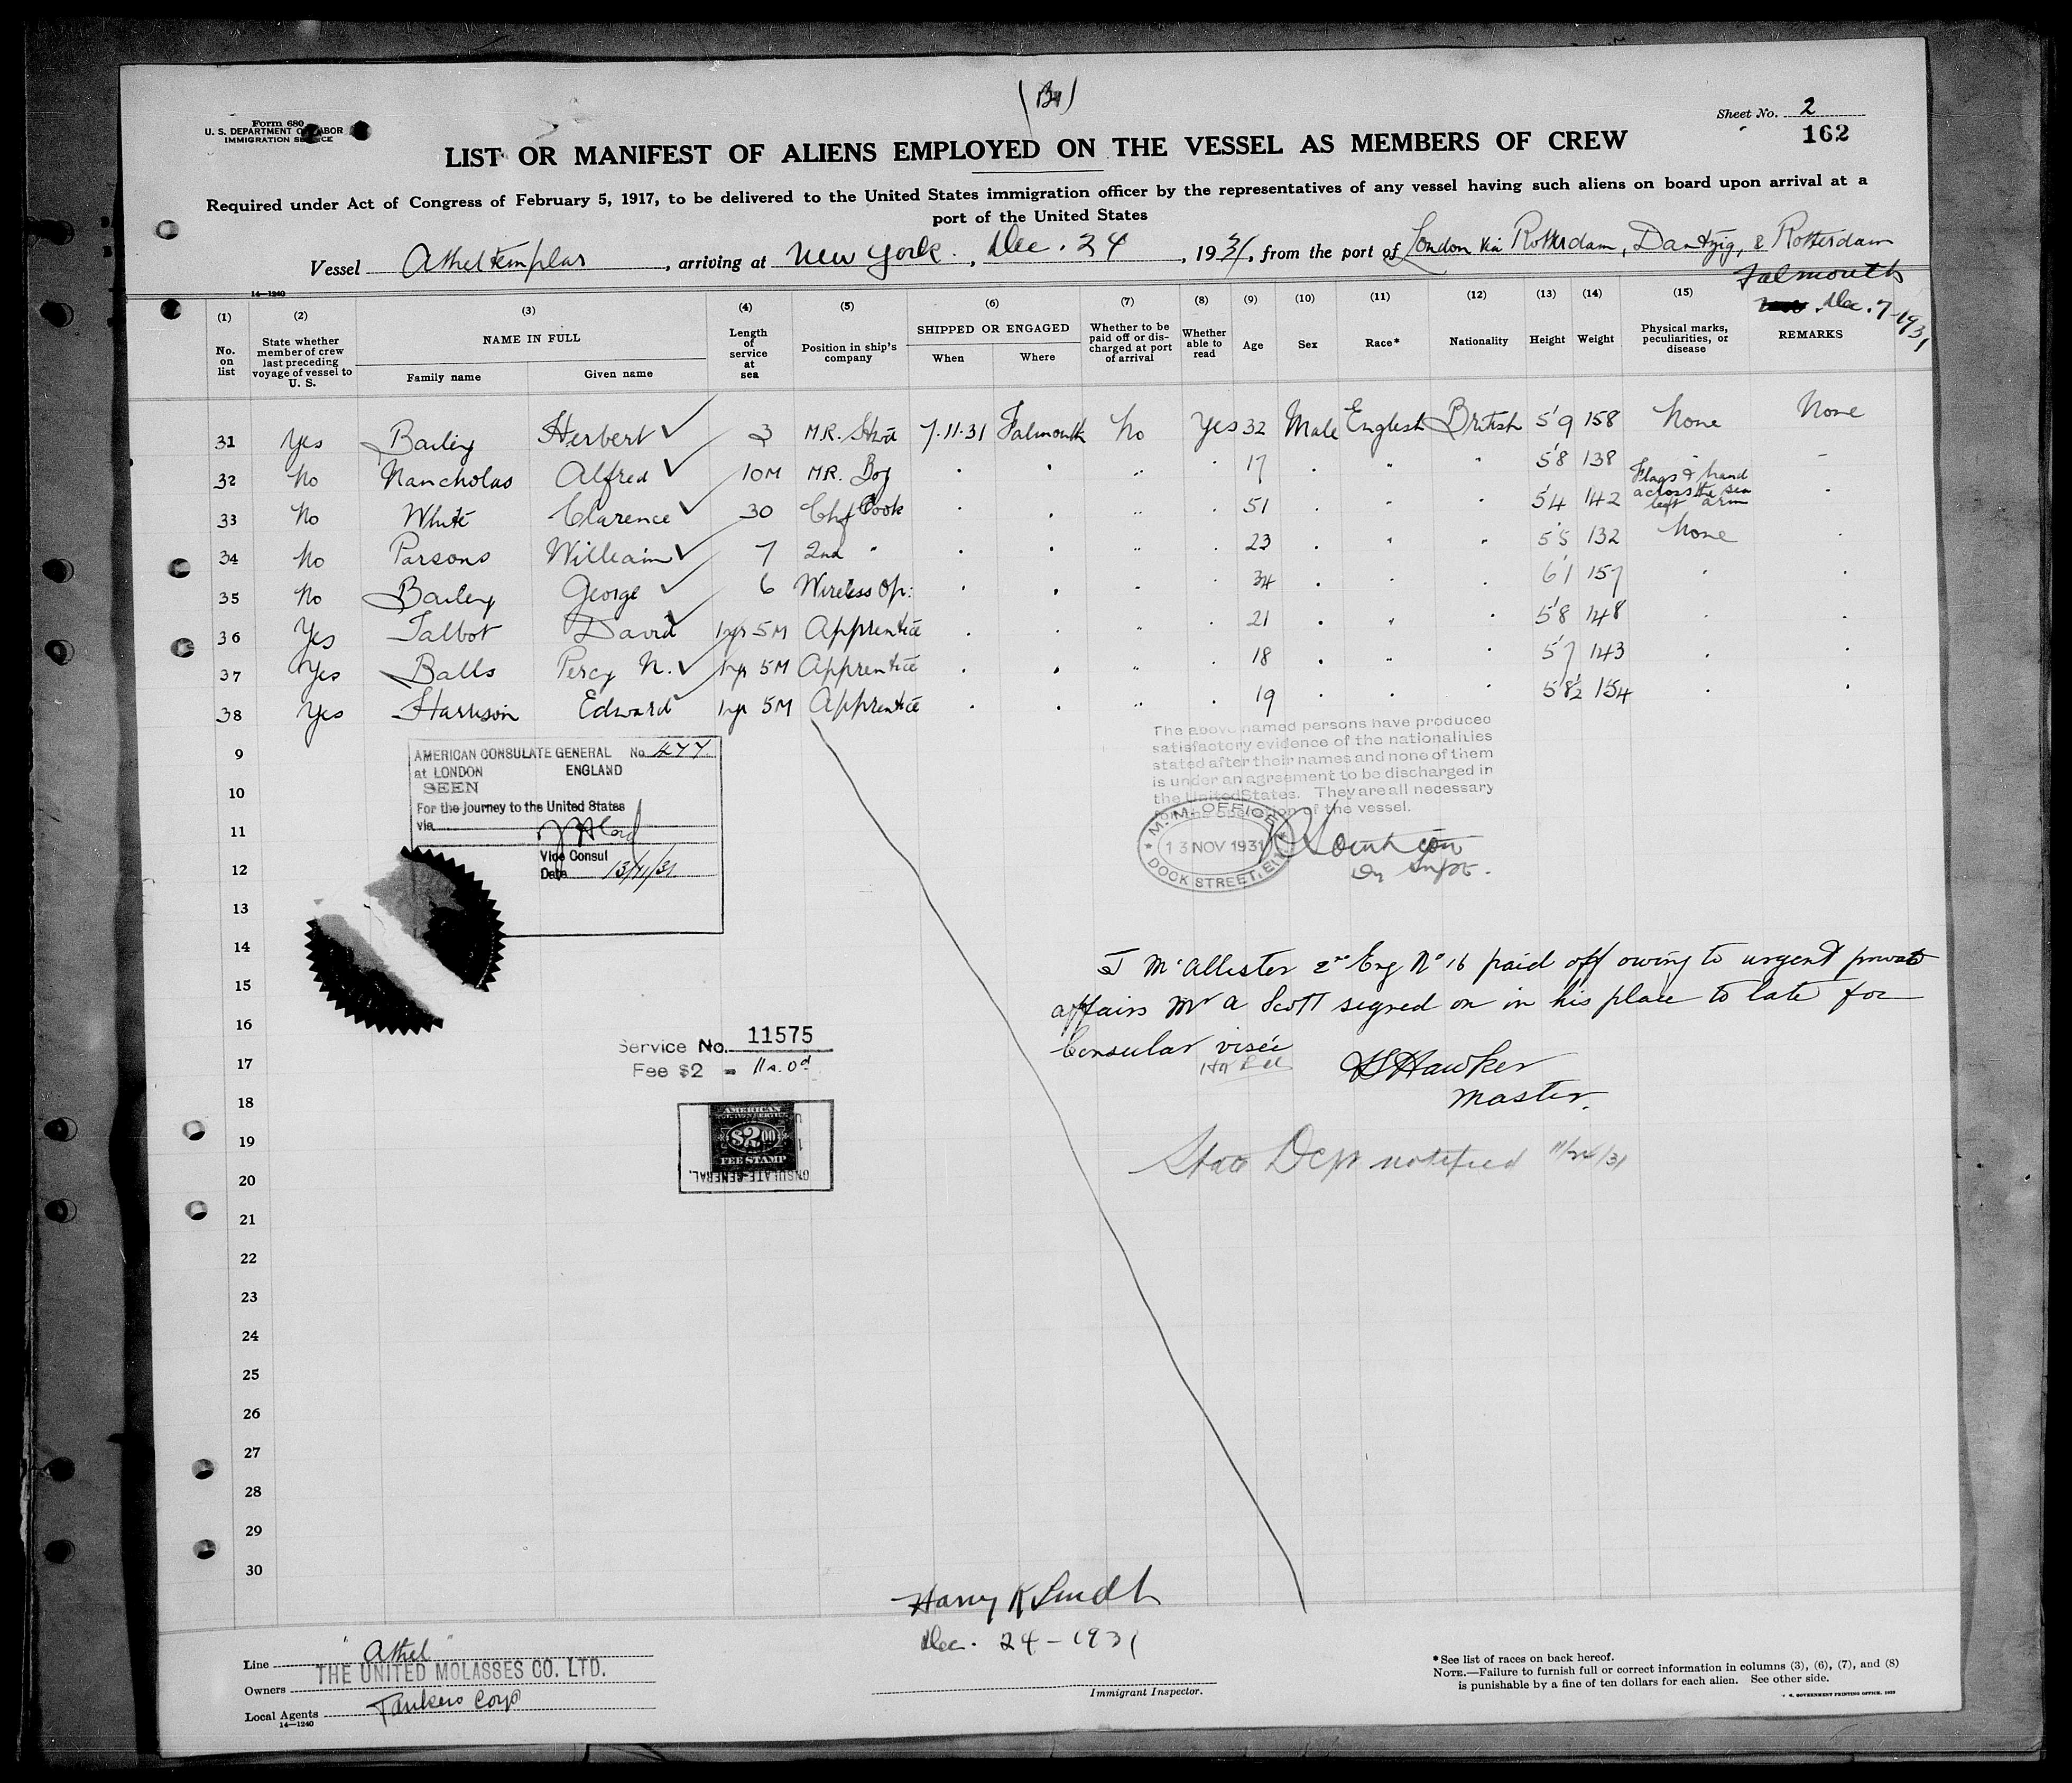 Form 680
U. S. DEPARTMENT OF LABOR
IMMIGRATION SERVICE
Sheet No. 2
162
LIST OR MANIFEST OF ALIENS EMPLOYED ON THE VESSEL AS MEMBERS OF CREW
Required under Act of Congress of February 5, 1917, to be delivered to the United States immigration officer by the representatives of any vessel having such aliens on board upon arrival at a
port of the United States
Vessel Atheltemplar, arriving at New York, Dec. 24, 1931, from the port of London via Rotterdam, Dantzig, & Rotterdam
Falmouth
Dec. 7-1931
14—1240
(1) (2) (3) (4) (5) (6) (7) (8) (9) (10) (11) (12) (13) (14) (15)
No. on list
State whether member of crew last preceding voyage of vessel to U. S.
NAME IN FULL
Family name Given name
Length of service at sea
Position in ship's company
SHIPPED OR ENGAGED
When Where
Whether to be paid off or discharged at port of arrival
Whether able to read
Age Sex Race* Nationality Height Weight
Physical marks, peculiarities, or disease
REMARKS
31 Yes Bailey Herbert ✓ 3 M.R. Stwd 7.11.31 Falmouth No Yes 32 Male English British 5'9 158 None None
32 No Nancholas Alfred ✓ 10M MR. Boy " " " " 17 " " " 5'8 138 " -
33 No White Clarence ✓ 30 Chf Cook " " " " 51 " " " 5'4 142 Flags & hand across the sea left arm "
34 No Parsons William ✓ 7 2nd " " " " " 23 " " " 5'5 132 None "
35 No Bailey George ✓ 6 Wireless Op: " " " " 34 " " " 6'1 157 " "
36 Yes Talbot David ✓ 1yr 5M Apprentice " " " " 21 " " " 5'8 148 " "
37 Yes Balls Percy N. ✓ 1yr 5M Apprentice " " " " 18 " " " 5'7 143 " "
38 Yes Harrison Edward ✓ 1yr 5M Apprentice " " " " 19 " " " 5'8½ 154 " "
9
10
11
12
13
14
15
16
17
18
19
20
21
22
23
24
25
26
27
28
29
30
AMERICAN CONSULATE GENERAL No. 477
at LONDON ENGLAND
SEEN
For the journey to the United States
via
Vice Consul
Date 13/11/31
The above named persons have produced
satisfactory evidence of the nationalities
stated after their names and none of them
is under an agreement to be discharged in
the United States. They are all necessary
for the operation of the vessel.
M. M. OFFICE
13 NOV 1931
DOCK STREET, E.1.
Supt.
J McAllister 2nd Eng No 16 paid off owing to urgent private
affairs Mr A Scott signed on in his place to late for
Consular visée
Hawker
Master.
State Dept notified 11/24/31
Service No. 11575
Fee $2 = 11s. 0d
AMERICAN
$2.00
FEE STAMP
CONSULATE-GENERAL.
Harry K
Dec. 24-1931
Immigrant Inspector.
Line "Athel"
Owners THE UNITED MOLASSES CO. LTD.
Local Agents Tankers Corp
14—1240
*See list of races on back hereof.
NOTE.—Failure to furnish full or correct information in columns (3), (6), (7), and (8)
is punishable by a fine of ten dollars for each alien. See other side.
U. S. GOVERNMENT PRINTING OFFICE. 1929